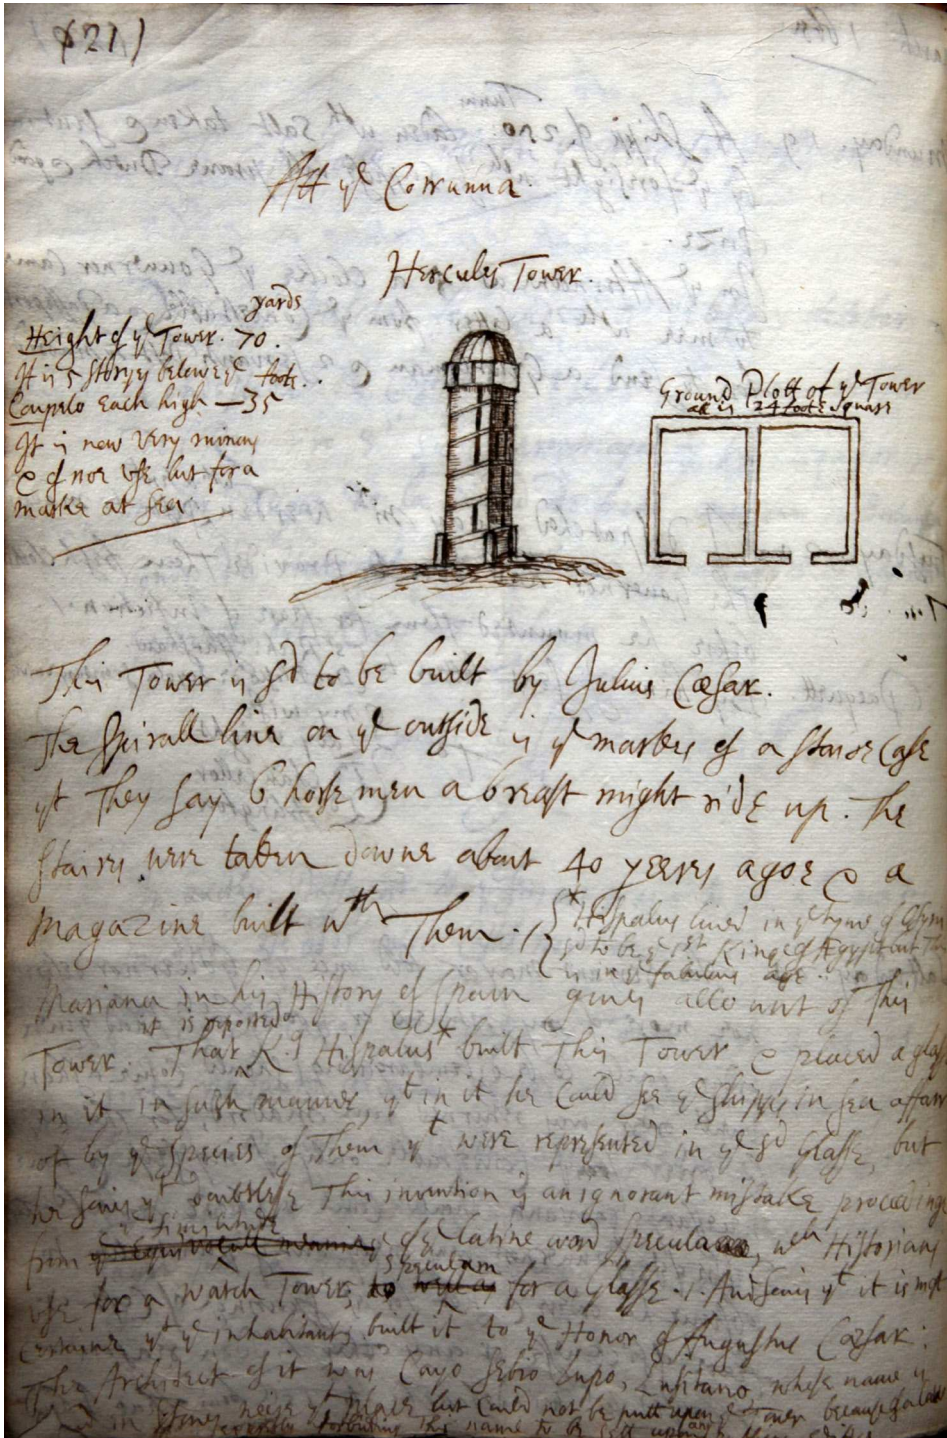 (21)
Att ye Corrunna.
Hercules Tower.
yards
Height of ye Tower. 70.
It is 5 storys belowe ye foote..
Coupelo Each high — 35
It is now very ruinous
& of noe use but for a
marke at sea
Ground Plott of ye Tower
all is 24 foote square
This Tower is sd to be built by Julius Cæsar.
The Spirall line on ye outside is ye markes of a staire Case
yt They say 6 horse men a breast might ride up. The
Stairs were taken downe about 40 yeeres agoe & a
Magazine built wth Them.
* Hispalus lived in ye tyme of
sd to be ye 1st King of Ægypt but
in ye fabulus age.
Mariana in his History of Spain gives account of This
it is reported
Tower. That K.g Hispalus * built This Tower & placed a glass
in it in such manner, yt in it he Could see ye shipps in sea affarr
not by ye species of Them yt were represented in ye sd Glasse, but
he saies yt doubtlesse This invention is an ignorant mistake proceeding
similitude
from ye equivocall meaning of ye latine word specula, wch Historians
speculum
use for a watch Tower, to well as for a Glasse. And saies yt it is most
certaine yt ye inhabitants built it to ye Honor of Augustus Cæsar.
The Architect of it was Cayo Sebio Lupo, Lusitano, whose name is
in stones neare ye place but could not be putt upon ye Tower because
expressly forbidding the name to be sett upon